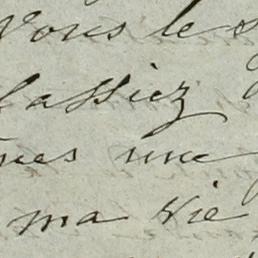 Vous le s
lassiez
nes une
ma vie